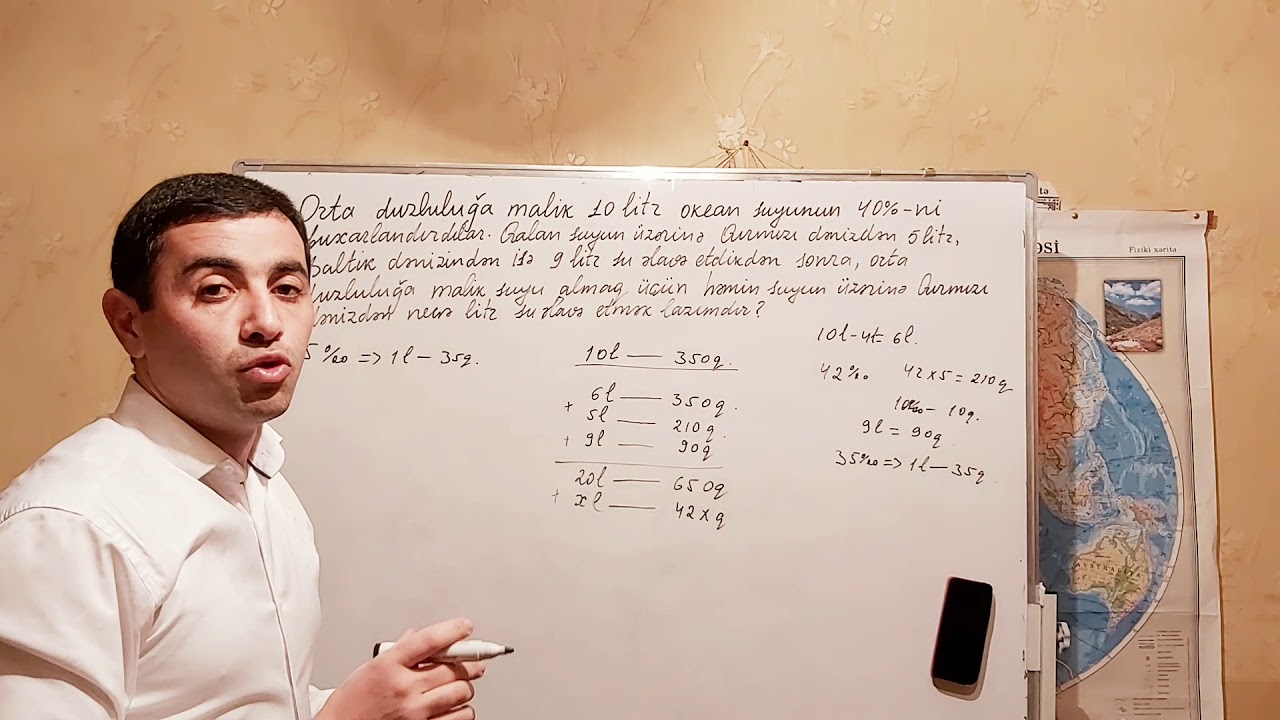 Orta duzluluğa malik 10 litr okean suyunun 40%-ni
buxarlandırdılar. Qalan suyun üzərinə Qırmızı dənizdən 5 litr,
Baltik dənizindən isə 9 litr su əlavə etdikdən sonra, orta
duzluluğa malik suyu almaq üçün həmin suyun üzərinə Qırmızı
dənizdən necə litr su əlavə etmək lazımdır?
5‰ => 1l — 35q.
10l — 350q.
6l — 350q.
+ 5l — 210q.
+ 9l — 90q
20l — 650q
+ xl — 42xq
10l-4l=6l.
42‰ 42x5=210q
10‰ - 10q.
9l = 90q
35‰ => 1l — 35q.
Fiziki xəritə
AVSTRALİYA